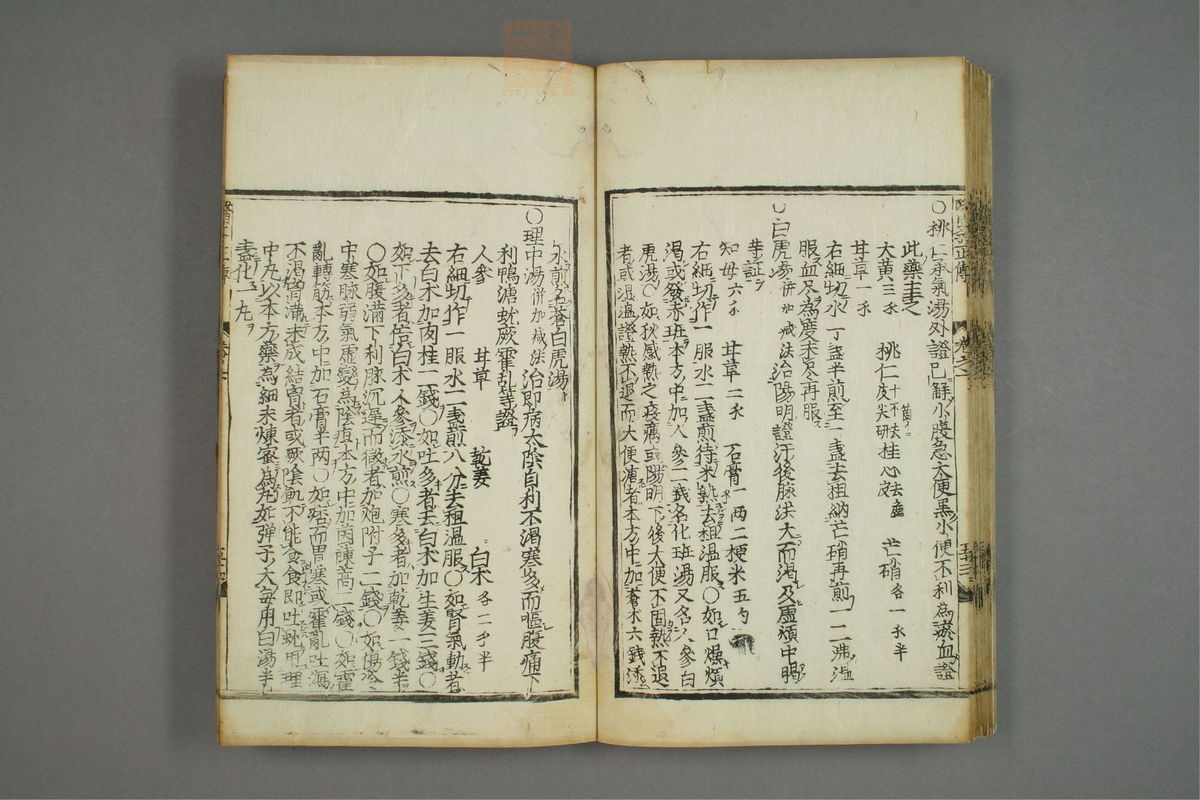 ○桃仁承氣湯外證已解小腹急大便黒小便不利為瘀血證
此藥主之
大黄三𠂆 桃仁十箇不去皮尖研 桂心去皮 芒硝各一𠂆半
甘草一𠂆
右細切水一盞半煎至一盞去柤納芒硝再煎一二沸温
服血尽為度未尽再服
○白虎湯併加减法治陽明證汗後脉洪大而渇及虚煩中暍
等証
知母六𠂆 甘草二𠂆 石膏一両二 粳米五勺
右細切作一服水二盞煎待米熟去柤温服○如口燥煩
渇或發赤斑本方中加人參二錢名化斑湯又名人參白
虎湯○如秋感熱之疫癘或陽明下後大便不固熱不退
者或温瘧證熱不退而大便溏者本方中加蒼术六錢添
水煎名蒼白虎湯
○理中湯併加减法治即病太陰自利不渇寒多而嘔腹痛下
利鴨溏蚘厥霍乱等證
人參 甘草 乾姜 白术各二𠂆半
右細切作一服水二盞煎八分去柤温服○如腎氣動者
去白术加肉桂二錢○如吐多者去白术加生姜三錢○
如下多者倍白术人參添水煎○寒多者加乾姜一錢半
○如腹满下利脉沉遅而微者加炮附子二錢○如傷冷
中寒脉弱氣虚變為陰疸本方中加茵蔯蒿二錢○如霍
亂轉筋本方中加石膏半両○如痞而胃寒或霍亂吐瀉
不渇胷满未成結胷者或厥陰飢不能食食即吐蚘用理
中丸以本方藥為細末煉蜜為丸如弾子大每用白湯半
盞化一丸